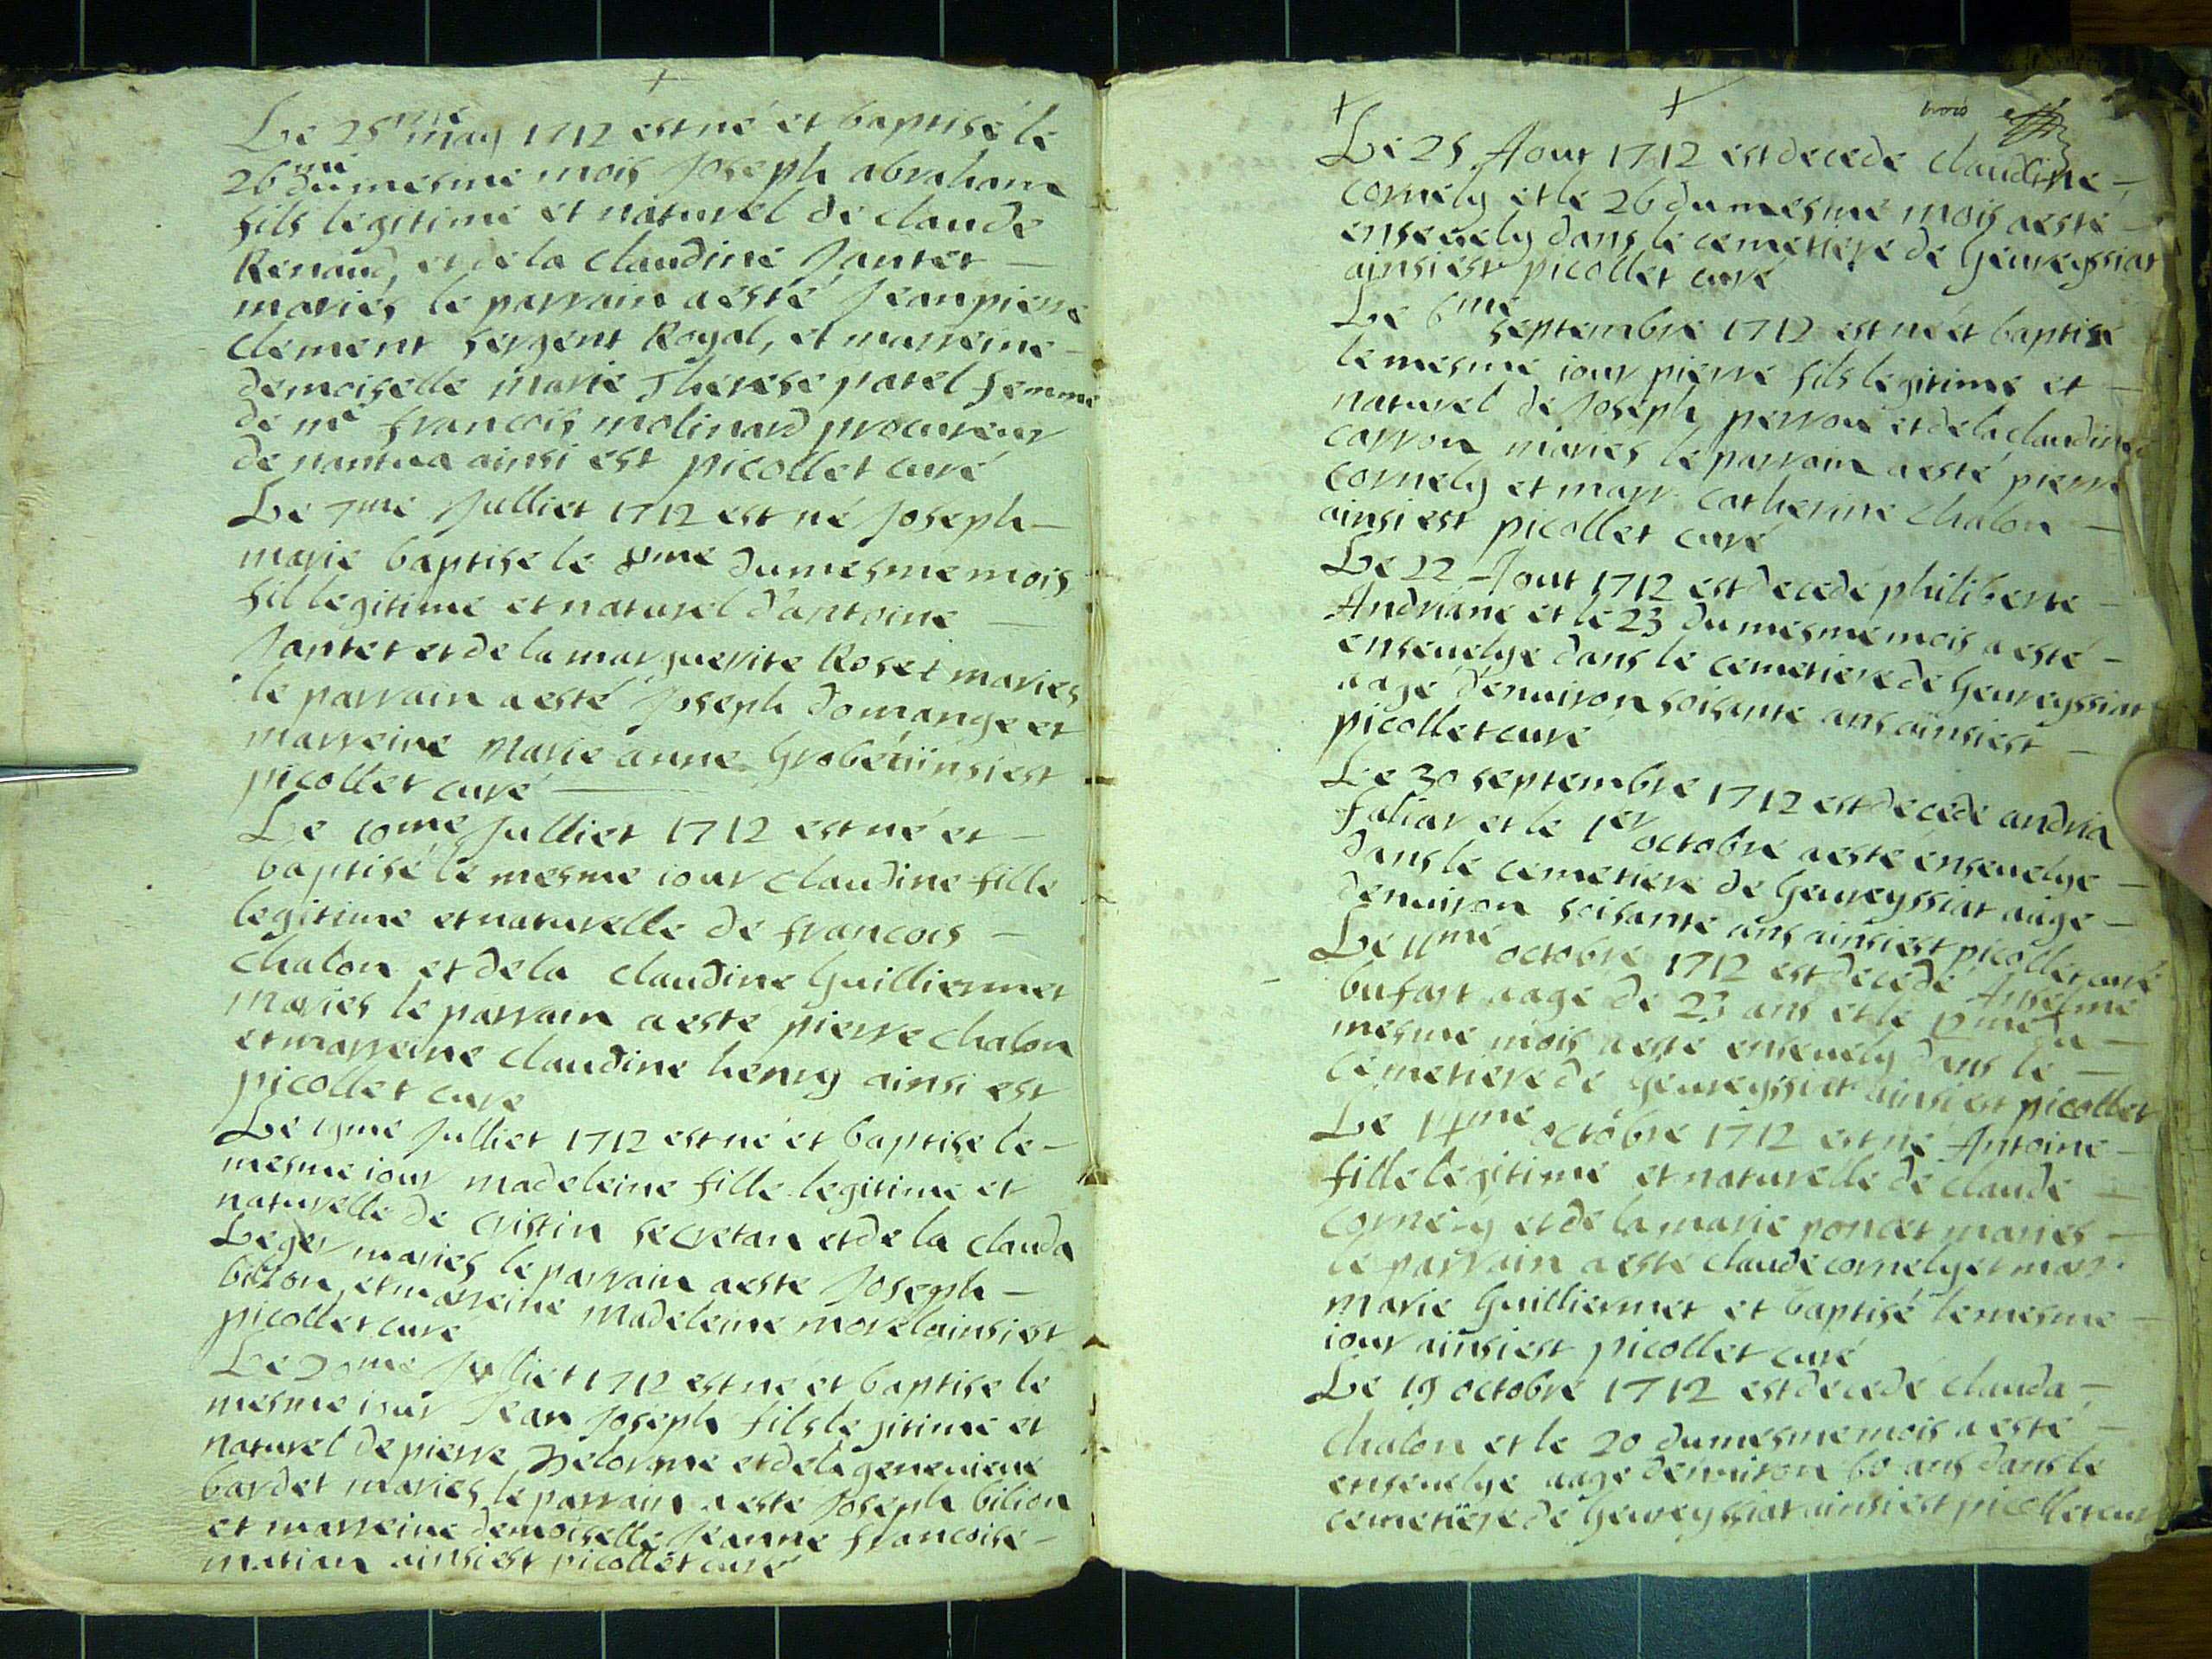 Le 25me may 1712 est né et baptisé le
26me du mesme mois Joseph abraham
fils legitime et naturel de claude
Renaud, et de la claudine Jantet —
mariés le parrain a esté Jean pierre
clement sergent Royal, et marreine —
demoiselle marie Therese patel femme
de me francois molinard procureur
de nantua ainsi est picollet curé
Le 7me Julliet 1712 est né Joseph —
marie baptise le 8me du mesme mois
fil legitime et naturel d'antoine —
Jantet et de la marguerite Roset maries
le parrain a esté Joseph domange et
marreine Marie anne Grobet ainsi est
picollet curé —
Le 10me Julliet 1712 est né et —
baptisé le mesme iour claudine fille
legitime et naturelle de francois —
chalon et de la claudine Guilliermet
Maries le parrain a esté pierre chalon
et marreine claudine henry ainsi est
picollet cure
Le 19me Julliet 1712 est né et baptise le —
mesme iour madeleine fille legitime et
naturelle de cristin secretan et de la clauda
Leger maries le parrain a este Joseph —
billon et marreine Madeleine morel ainsi est
picollet curé
Le 20me Julliet 1712 est né et baptise le
mesme iour Jean Joseph fils legitime et
naturel de pierre Delorme et de la genevieve
bardet maries le parrain a esté Joseph bilion
et marreine demoiselle Jeanne francoise —
matian ainsi est picollet curé
trois
Le 25 Aout 1712 est decede claudine —
cornely et le 26 du mesme mois a esté —
ensevely dans le cemetiere de Geureyssiat
ainsi est picollet curé
Le 6me septembre 1712 est né et baptisé
le mesme iour pierre fils legitime et —
naturel de Joseph perron et de la claudine
carron mariés le parrain a esté pierre
cornely et marr. catherine chalon —
ainsi est picollet curé
Le 22 Aout 1712 est decedé philiberte —
Andriane et le 23 du mesme mois a esté —
ensevelye dans le cemetiere de Geureyssiat
aagé d'environ soisante ans ainsi est —
picollet curé
Le 30 septembre 1712 est decede andria
Juliar et le 1er octobre a esté ensevelye —
dans le cemetiere de Geureyssiat aage —
d'environ soisante ans ainsi est picollet curé
Le 11me octobre 1712 est decedé Anselme
bufart aagé de 23 ans et le 12me du —
mesme mois a esté ensevely dans le —
cemetiere de geureyssiat ainsi est picollet
Le 14me octobre 1712 est né Antoine —
fille legitime et naturelle de claude —
cornely et de la marie poncet maries —
le parrain a esté claude cornely et marr.
Marie Guilliermet et baptisé le mesme —
iour ainsi est picollet curé
Le 19 octobre 1712 est decedé clauda —
chalon et le 20 du mesme mois a esté —
ensevelye aage d'environ 60 ans dans le
cemetiere de Geureyssiat ainsi est picollet curé